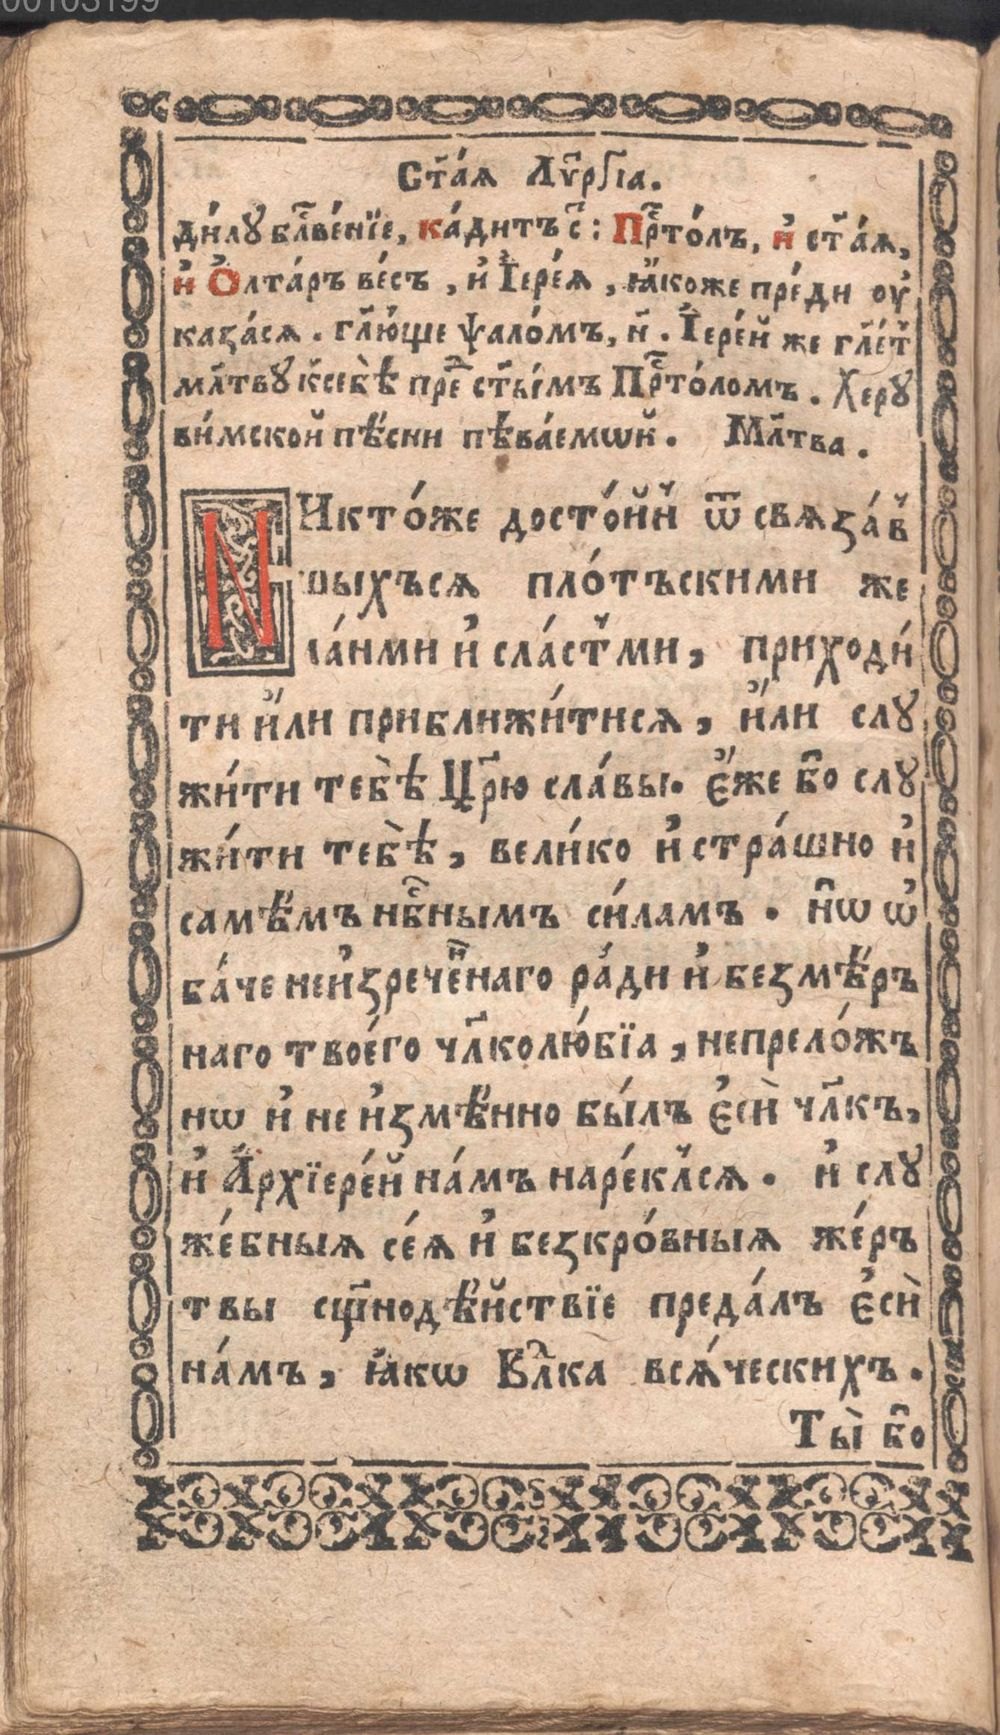 00103199
Ст҃а́ѧ Лѵⷬ҇гі́а.
ди́лꙋ блⷭ҇ве́нїе, ка́дитъ с҃: Прⷭ҇то́лъ, и҆ ст҃а́ѧ,
и҆ Ѻ҆лта́ръ ве́съ, и҆ І҆ере́ѧ, ꙗ҆́коже пре́ди оу҆
каза́сѧ. гл҃ю́ще ѱало́мъ, н҃. І҆ере́й же гл҃е́тъ
мл҃твꙋ к̾себѣ̀ преⷣ ст҃ы́мъ Прⷭ҇то́ломъ. Херꙋ
ви́мской пѣ́сни пѣва́емѡй. Мл҃тва.
НИкто́же досто́йн̾ ѿ свѧза́в̾
шыхъсѧ пло́тъскими же
ла́нми и҆ сла́стми, приходи́
ти и҆̀ли приближи́тисѧ, и҆̀ли слꙋ
жи́ти тебѣ̀ Цр҃ю сла́вы. є҆́же бо̑ слꙋ
жи́ти тебѣ̀, вели́ко и҆ стра́шно и҆
самѣ́мъ нбⷭ҇нымъ си́ламъ. но̑ѡ ѡ҆
ба́че неи҆зрече́ннаго ра́ди и҆ безмѣ́ръ
наго твоегѡ̀ чл҃колю́бїа, непрело́жъ
нѡ и҆ не и҆змѣ́нно бы́лъ є҆сѝ чл҃къ,
и҆ А҆рхїере́й на́мъ наре́клсѧ. и҆ слꙋ
же́бныѧ сеѧ́ и҆ безкро́вныѧ же́ръ
твы сщ҃нодѣ́йствїе преда́лъ є҆сѝ
на́мъ, ꙗ҆́кѡ Влⷣка всѧ́ческихъ.
Ты̀ бо̑